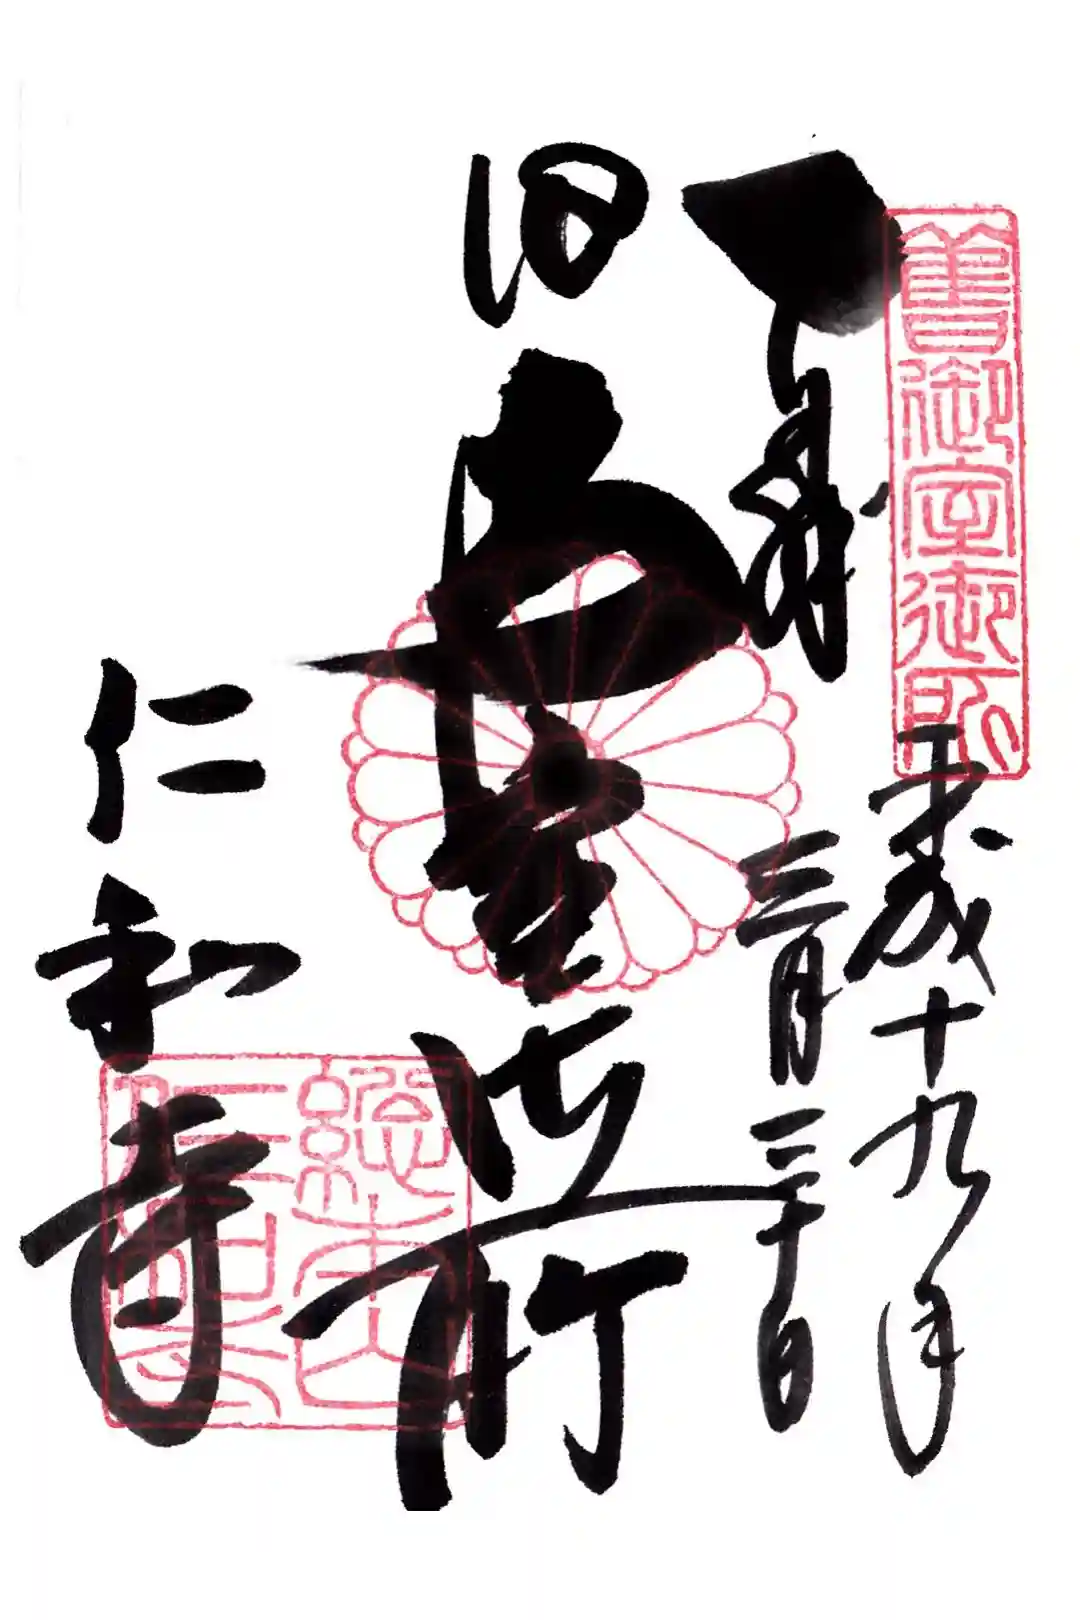 旧御室御所
平成十九年
奉拝
三月二十日
旧御室御所
仁和寺
総本山
仁和寺